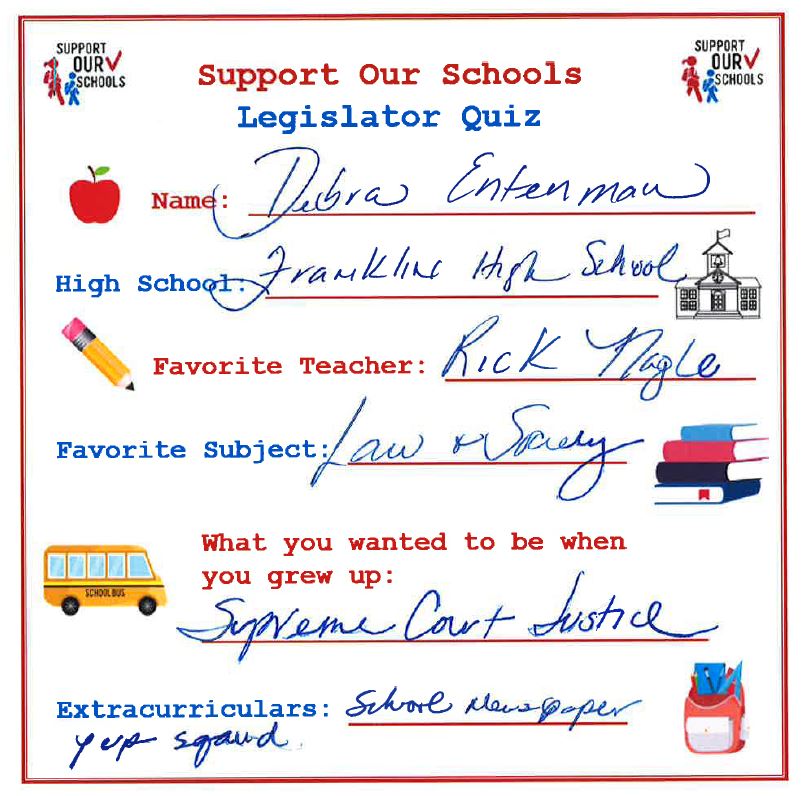 SUPPORT OUR SCHOOLS
SUPPORT OUR SCHOOLS
Support Our Schools
Legislator Quiz
Name: Debra Entenman
High School: Franklin High School
Favorite Teacher: Rick Nagle
Favorite Subject: Law & Society
SCHOOL BUS
What you wanted to be when
you grew up:
Supreme Court Justice
Extracurriculars: School Newspaper
squad